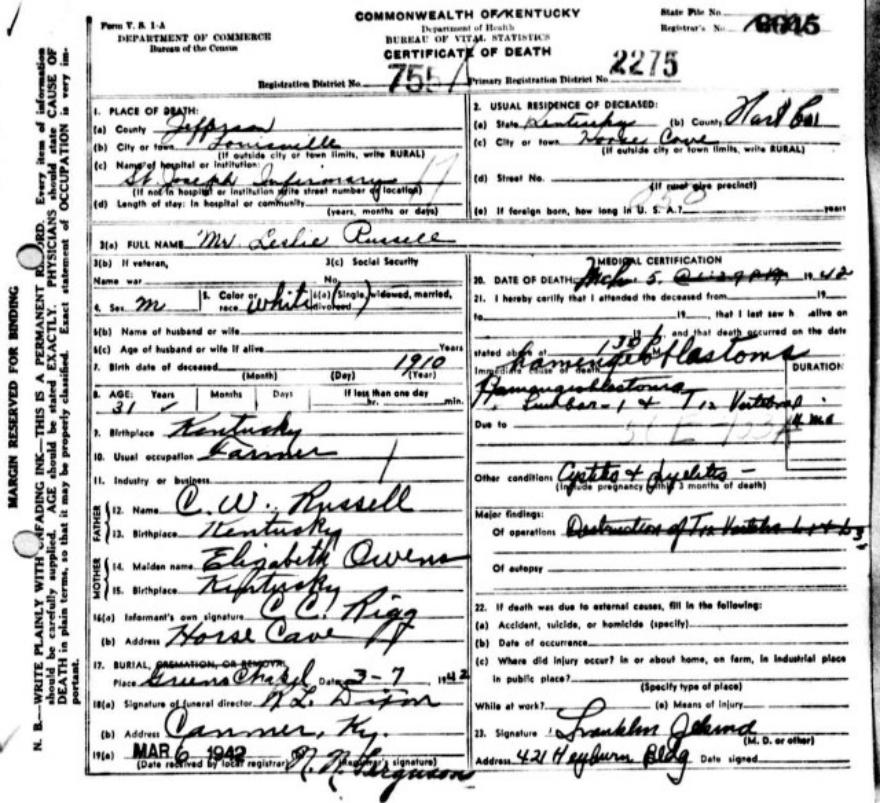 Form V. S. 1-A
DEPARTMENT OF COMMERCE
Bureau of the Census
COMMONWEALTH OF KENTUCKY
Department of Health
BUREAU OF VITAL STATISTICS
CERTIFICATE OF DEATH
State File No.
Registrar's No.
Registration District No. 755 Primary Registration District No. 2275
MARGIN RESERVED FOR BINDING
N. B.—WRITE PLAINLY WITH UNFADING INK—THIS IS A PERMANENT RECORD. Every item of information
should be carefully supplied. AGE should be stated EXACTLY. PHYSICIANS should state CAUSE OF
DEATH in plain terms, so that it may be properly classified. Exact statement of OCCUPATION is very im-
portant.
1. PLACE OF DEATH:
(a) County Jefferson
(b) City or town Louisville
(If outside city or town limits, write RURAL)
(c) Name of hospital or institution:
St Joseph Infirmary
(If not in hospital or institution write street number or location)
(d) Length of stay: In hospital or community
(years, months or days)
2. USUAL RESIDENCE OF DECEASED:
(a) State Kentucky (b) County Hart Co
(c) City or town Horse Cave
(If outside city or town limits, write RURAL)
(d) Street No.
(If rural give precinct)
(e) If foreign born, how long in U. S. A.? years
3(a) FULL NAME Mr. Leslie Russell
3(b) If veteran,
Name war
3(c) Social Security
No.
4. Sex M 5. Color or race White 6(a) Single, widowed, married, divorced
6(b) Name of husband or wife
6(c) Age of husband or wife if alive Years
7. Birth date of deceased 1910
(Month) (Day) (Year)
8. AGE: Years Months Days If less than one day
31 hr. min.
9. Birthplace Kentucky
10. Usual occupation Farmer
11. Industry or business
FATHER
12. Name C. W. Russell
13. Birthplace Kentucky
MOTHER
14. Maiden name Elizabeth Owens
15. Birthplace Kentucky
16(a) Informant's own signature C. C. Rigg
(b) Address Horse Cave
17. BURIAL, CREMATION, OR REMOVAL
Place Greens Chapel Date 3-7 1942
18(a) Signature of funeral director N. L. Dixon
(b) Address Canmer, Ky.
19(a) MAR 6 1942 N. N. Ferguson
(Date received by local registrar) (Registrar's signature)
MEDICAL CERTIFICATION
20. DATE OF DEATH Mch. 5. 1942
21. I hereby certify that I attended the deceased from 19
to 19 , that I last saw h alive on
19 , and that death occurred on the date
stated above at 1 30 P M
Immediate cause of death
DURATION
Hamengeoblastoma
Lumbar-1 & T12 Vertebra
Due to 4 mo
Other conditions Cystitis & Pyelitis
(Include pregnancy within 3 months of death)
Major findings:
Of operations Destruction of T12
Of autopsy
22. If death was due to external causes, fill in the following:
(a) Accident, suicide, or homicide (specify)
(b) Date of occurrence
(c) Where did injury occur? in or about home, on farm, in industrial place
in public place?
(Specify type of place)
While at work? (e) Means of injury
23. Signature Franklin
(M. D. or other)
Address 421 Heyburn Bldg Date signed